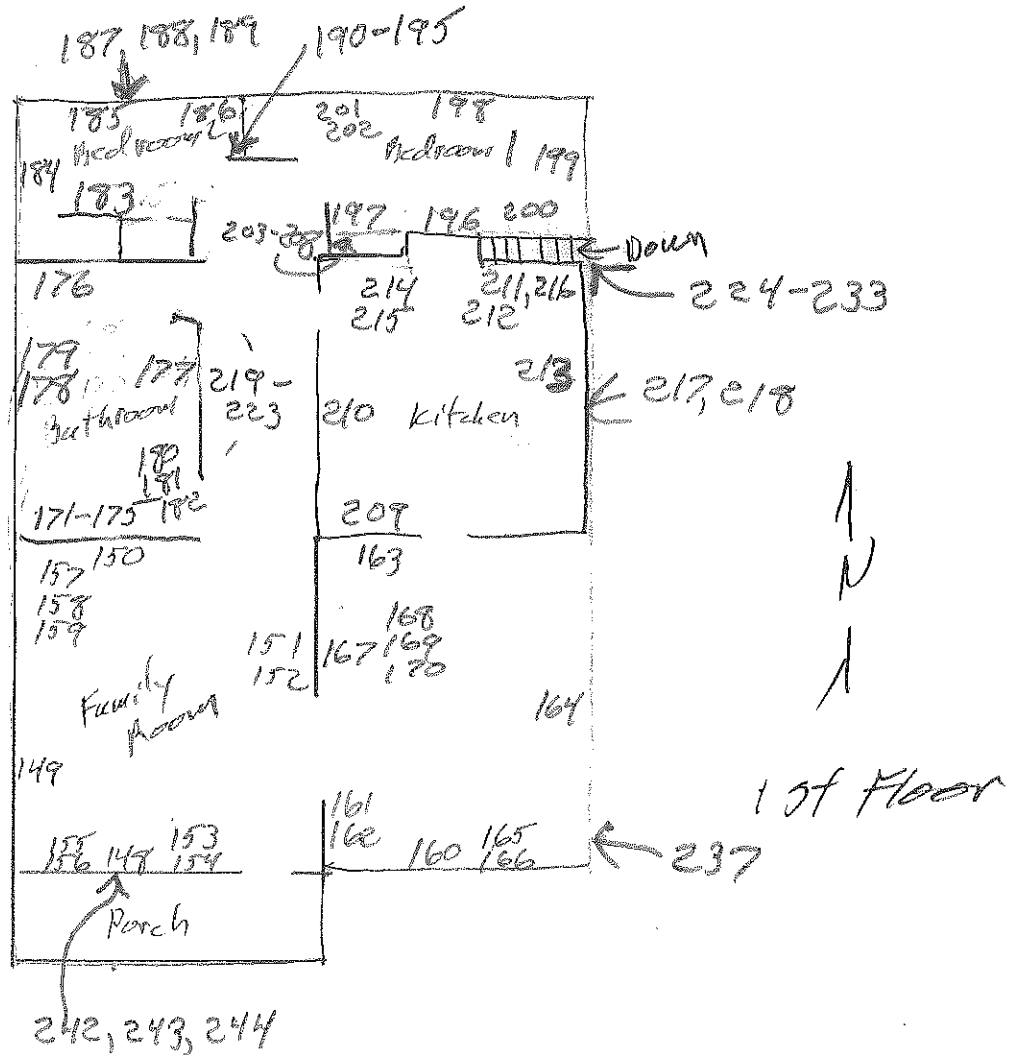 187, 188, 189
190-195
185
186
201
202
198
Bedroom 2
Bedroom 1
184
199
183
197
196
200
Down
176
214
215
211, 216
212
224-233
179
178
177
219-
223
213
217, 218
Bathroom
210
Kitchen
180
181
182
171-175
209
150
163
157
158
159
N
151
152
167
168
169
170
Family
Room
164
149
1st Floor
161
162
155
156
148
153
154
160
165
166
237
Porch
242, 243, 244